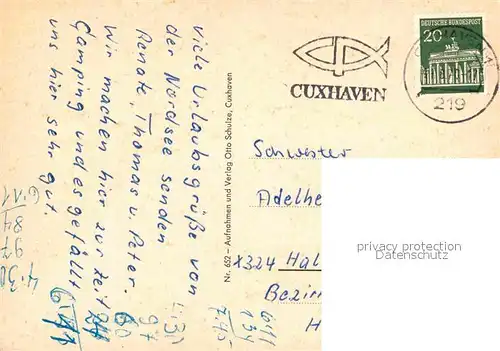 Viele Urlaubsgrüße von
der Nordsee senden
Renate, Thomas u. Peter.
Wir machen hier zur Zeit
Camping und es gefällt
uns hier sehr gut.
Nr. 652 – Aufnahmen und Verlag Otto Schulze, Cuxhaven
CUXHAVEN
DEUTSCHE BUNDESPOST
20
219
Schwester
Adelhe
X324 Hal
Bezir
H
privacy protection
Datenschutz
6.11
84
97
4.30
97
7.45
6.11
134